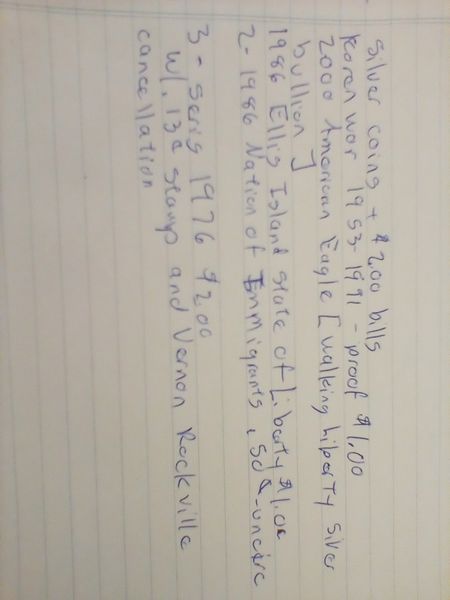 Silver coins + $2.00 bills
Koren war 1953-1991 - proof $1.00
2000 American Eagle [walking liberty silver
bullion]
1986 Ellis Island State of Liberty $1.00
2- 1986 Nation of Immigrants, 50¢-uncirc
3- Seris 1976 $2.00
w/. 13¢ stamp and Vernon Rockville
cancellation